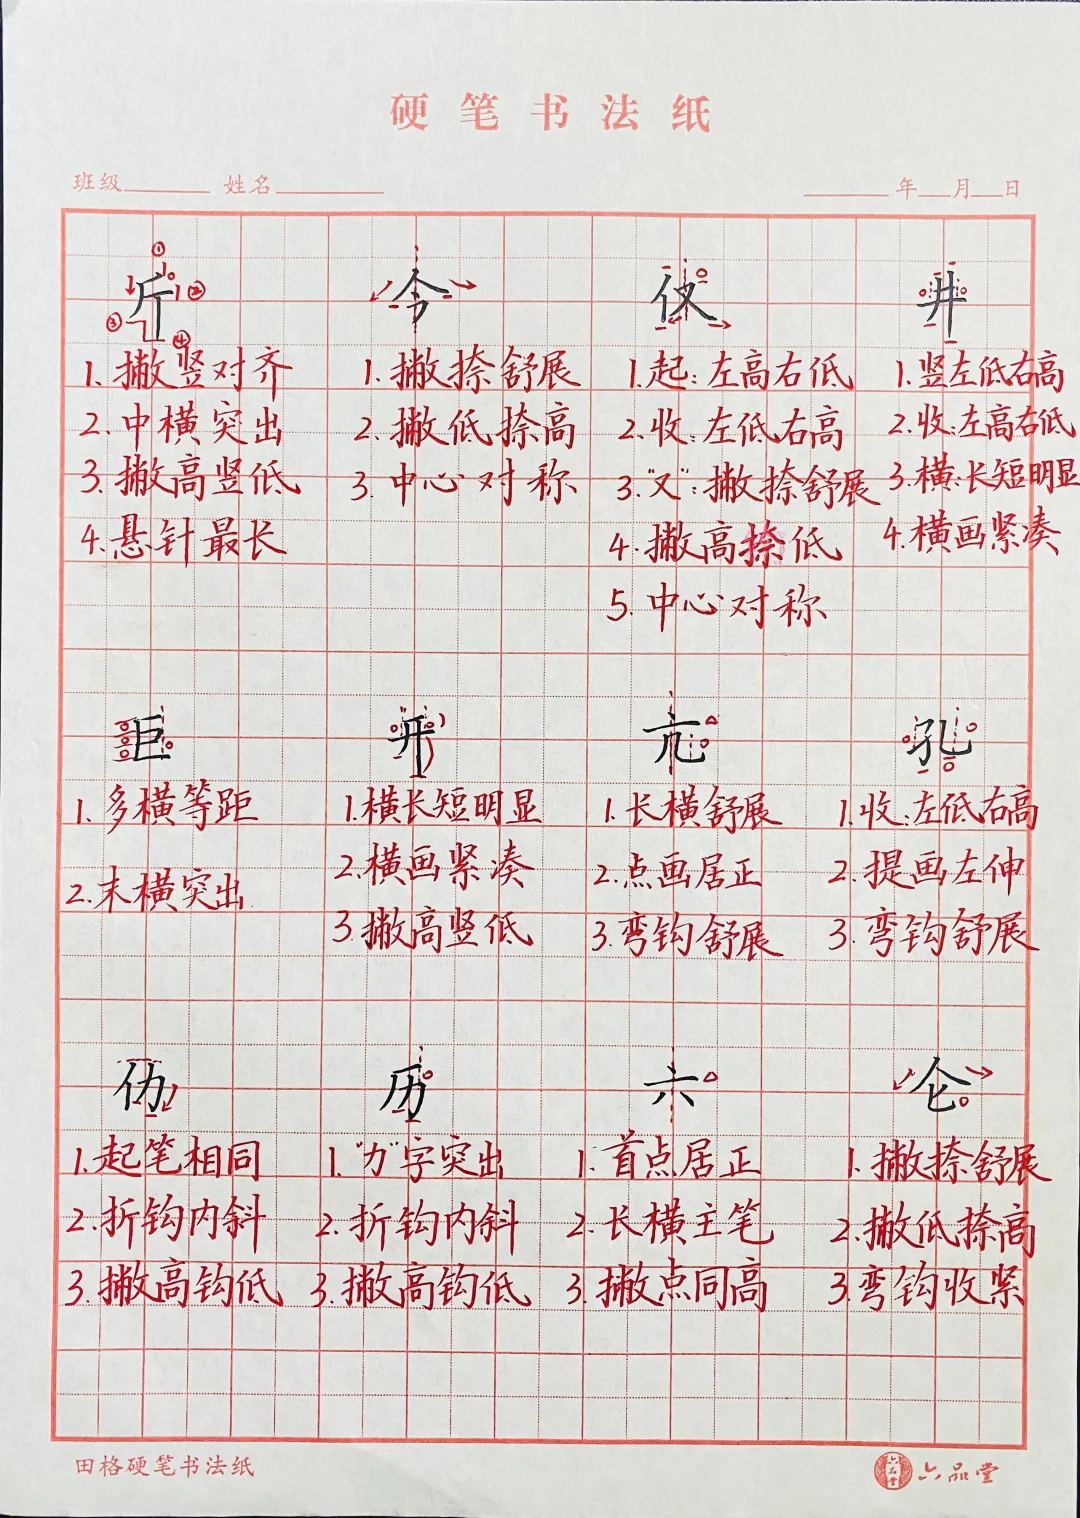 硬笔书法纸
班级 姓名 年 月 日
斤 今 仅 井
1.撇竖对齐 1.撇捺舒展 1.起:左高右低 1.竖左低右高
2.中横突出 2.撇低捺高 2.收:左低右高 2.收:左高右低
3.撇高竖低 3.中心对称 3."又":撇捺舒展 3.横:长短明显
4.悬针最长 4.撇高捺低 4.横画紧凑
5.中心对称
巨 开 亢 孔
1.多横等距 1.横长短明显 1.长横舒展 1.收:左低右高
2.末横突出 2.横画紧凑 2.点画居正 2.提画左伸
3.撇高竖低 3.弯钩舒展 3.弯钩舒展
仂 历 六 仑
1.起笔相同 1."力"字突出 1.首点居正 1.撇捺舒展
2.折钩内斜 2.折钩内斜 2.长横主笔 2.撇低捺高
3.撇高钩低 3.撇高钩低 3.撇点同高 3.弯钩收紧
田格硬笔书法纸 六品堂 六品堂